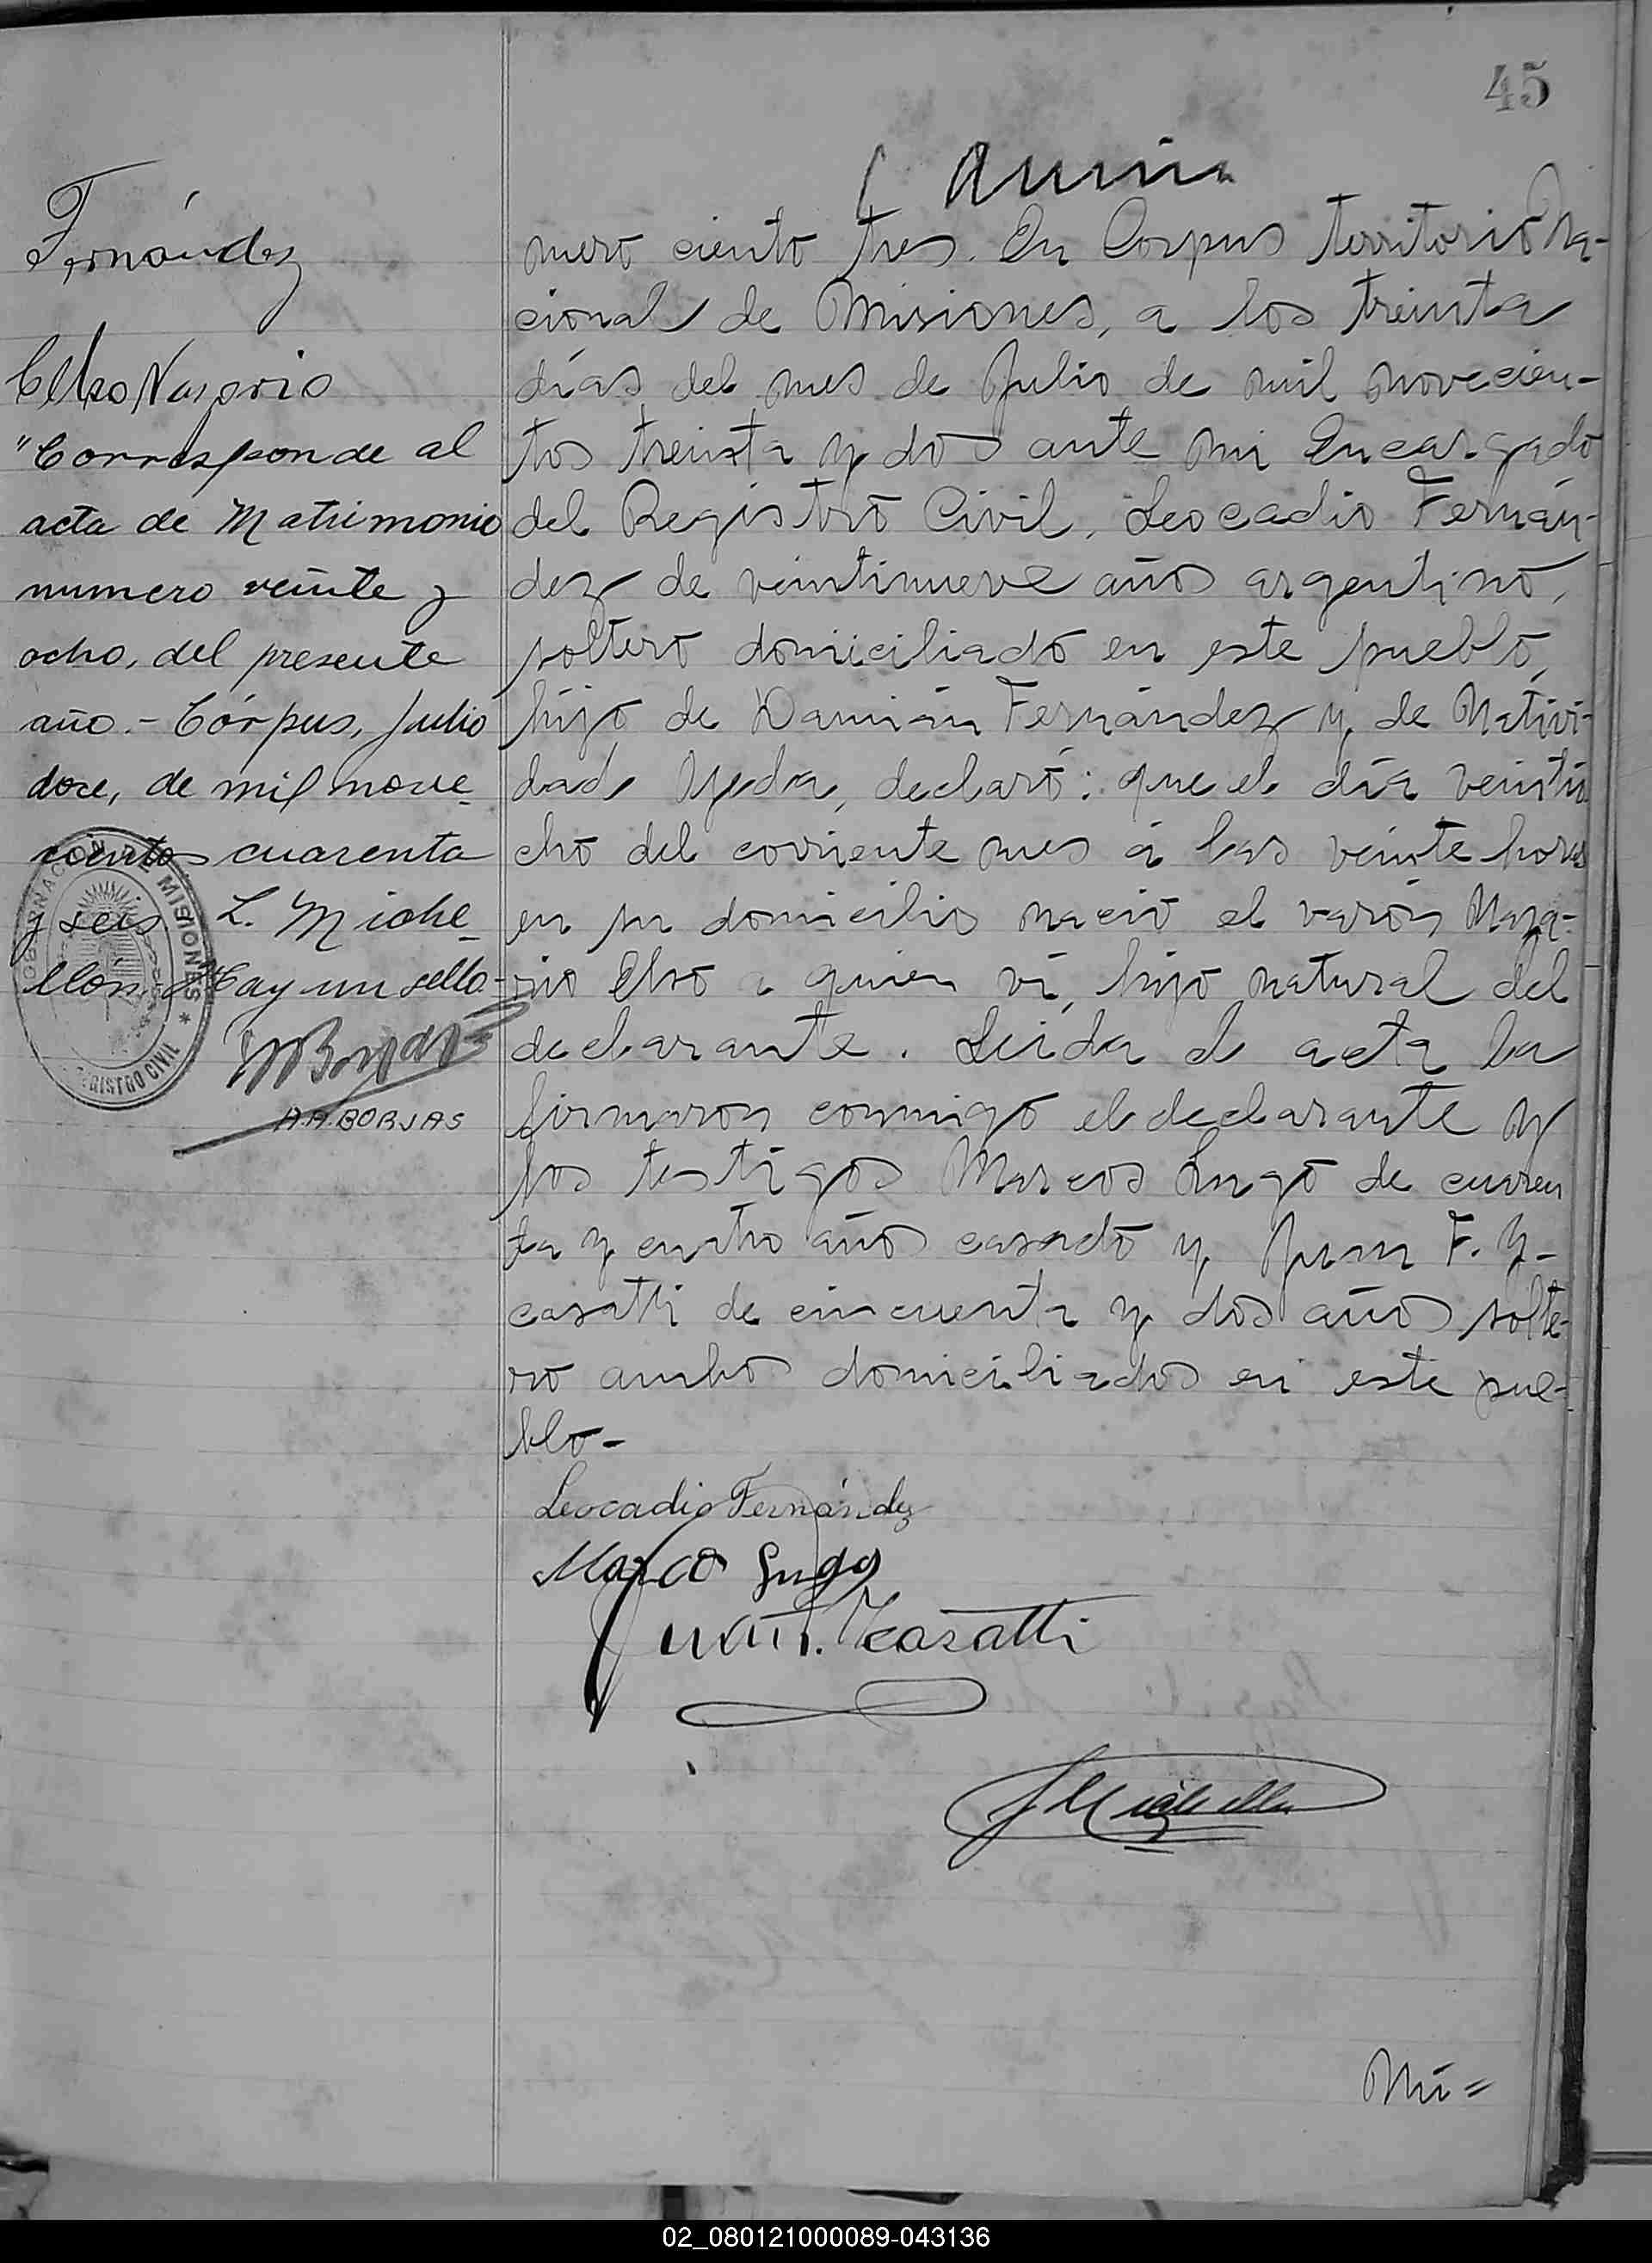 45
Fernández
Celso Nazario
"Corresponde al
acta de Matrimonio
numero veinte y
ocho, del presente
año.- Córpus, Julio
doce, de mil nove-
cientos cuarenta
y seis. L. Miche-
llón. Hay un sello-
A.A. BORJAS
GOBERNACION DE MISIONES * REGISTRO CIVIL
mero ciento tres. En Corpus territorio Na-
cional de Misiones, a los treinta
días del mes de Julio de mil novecien-
tos treinta y dos ante mi Encargado
del Registro Civil, Leocadio Fernán-
dez de veintinueve años argentino,
soltero domiciliado en este pueblo,
hijo de Damián Fernández y de Nativi-
dad Ojeda, declaró: que el día veintio
cho del corriente mes a las veinte horas
en su domicilio nació el varón Naza-
rio Elso a quien ví, hijo natural del
declarante. Leida el acta la
firmaron conmigo el declarante y
los testigos Marcos Lugo de cuaren
ta y cuatro años casado y Juan F. Y-
casatti de cincuenta y dos años solte-
ro ambos domiciliados en este pue-
blo-
Leocadio Fernández
Marco Lugo
Juan F. Ycasatti
Nú=
02_080121000089-043136